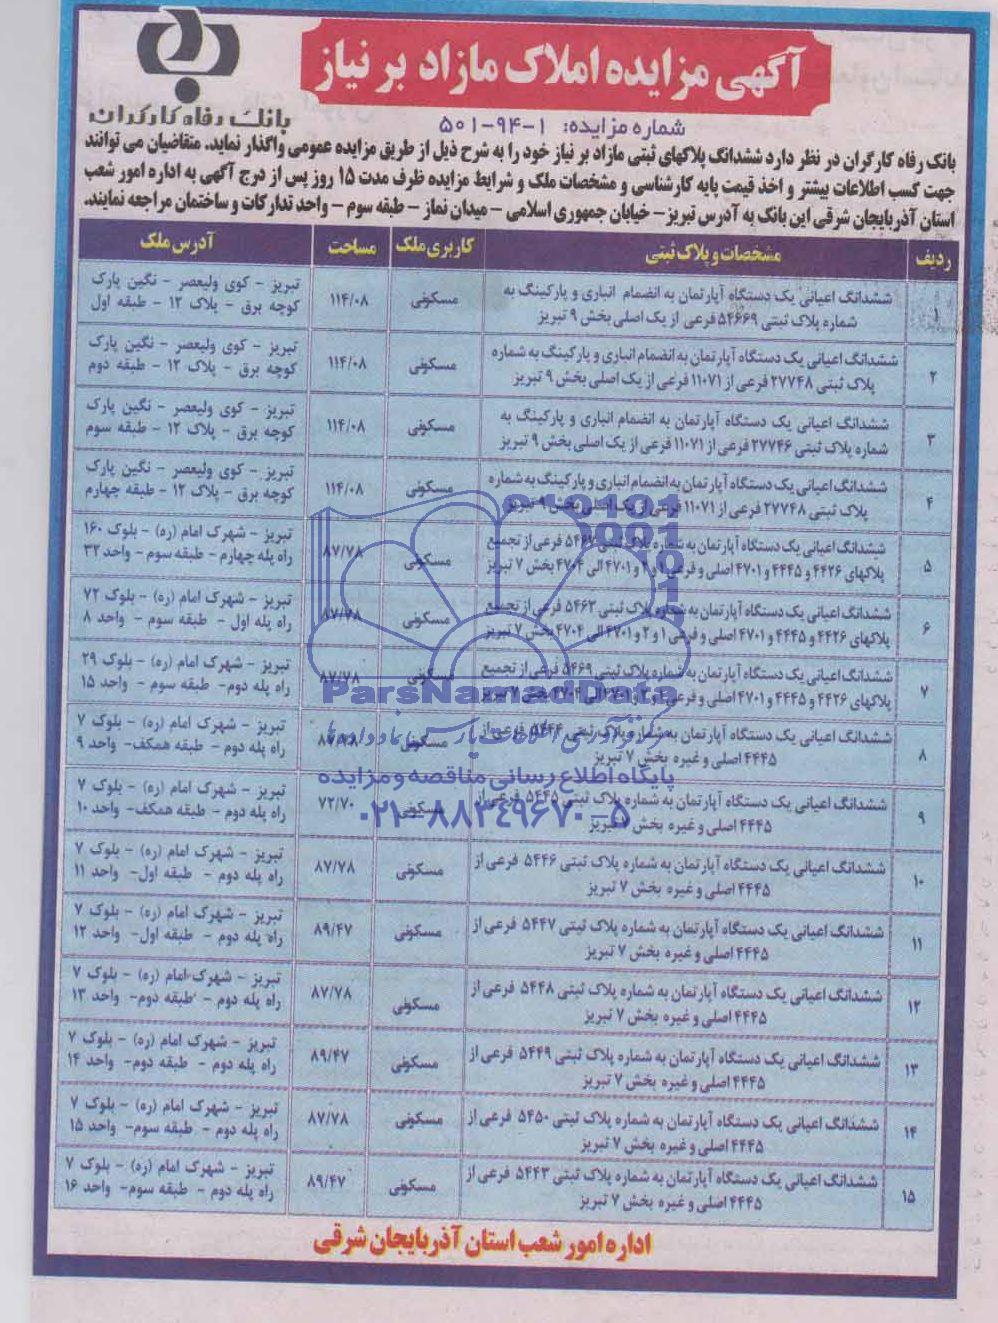 آگهی مزایده املاک مازاد بر نیاز
بانک رفاه کارگران
شماره مزایده: ۱-۹۴-۵۰۱
بانک رفاه کارگران در نظر دارد ششدانگ پلاکهای ثبتی مازاد بر نیاز خود را به شرح ذیل از طریق مزایده عمومی واگذار نماید. متقاضیان می توانند
جهت کسب اطلاعات بیشتر و اخذ قیمت پایه کارشناسی و مشخصات ملک و شرایط مزایده ظرف مدت ۱۵ روز پس از درج آگهی به اداره امور شعب
استان آذربایجان شرقی این بانک به آدرس تبریز- خیابان جمهوری اسلامی - میدان نماز - طبقه سوم - واحد تدارکات و ساختمان مراجعه نمایند.
ردیف مشخصات و پلاک ثبتی کاربری ملک مساحت آدرس ملک
۱ ششدانگ اعیانی یک دستگاه آپارتمان به انضمام انباری و پارکینگ به
شماره پلاک ثبتی ۵۴۶۶۹ فرعی از یک اصلی بخش ۹ تبریز
مسکونی ۱۱۴/۰۸
تبریز - کوی ولیعصر - نگین پارک
کوچه برق - پلاک ۱۲ - طبقه اول
۲ ششدانگ اعیانی یک دستگاه آپارتمان به انضمام انباری و پارکینگ به شماره
پلاک ثبتی ۲۷۷۴۸ فرعی از ۱۱۰۷۱ فرعی از یک اصلی بخش ۹ تبریز
مسکونی ۱۱۴/۰۸
تبریز - کوی ولیعصر - نگین پارک
کوچه برق - پلاک ۱۲ - طبقه دوم
۳ ششدانگ اعیانی یک دستگاه آپارتمان به انضمام انباری و پارکینگ به
شماره پلاک ثبتی ۲۷۷۴۶ فرعی از ۱۱۰۷۱ فرعی از یک اصلی بخش ۹ تبریز
مسکونی ۱۱۴/۰۸
تبریز - کوی ولیعصر - نگین پارک
کوچه برق - پلاک ۱۲ - طبقه سوم
۴ ششدانگ اعیانی یک دستگاه آپارتمان به انضمام انباری و پارکینگ به شماره
پلاک ثبتی ۲۷۷۴۸ فرعی از ۱۱۰۷۱ فرعی از یک اصلی بخش ۹ تبریز
مسکونی ۱۱۴/۰۸
تبریز - کوی ولیعصر - نگین پارک
کوچه برق - پلاک ۱۲ - طبقه چهارم
۵ ششدانگ اعیانی یک دستگاه آپارتمان به شماره پلاک ثبتی ۵۴۶۷ فرعی از تجمیع
پلاکهای ۴۴۲۶ و ۴۴۴۵ و ۴۷۰۱ اصلی و فرعی ۱ و ۲ و ۴۷۰۱ الی ۴۷۰۴ بخش ۷ تبریز
مسکونی ۸۷/۷۸
تبریز - شهرک امام (ره) - بلوک ۱۶۰
راه پله چهارم - طبقه سوم - واحد ۳۲
۶ ششدانگ اعیانی یک دستگاه آپارتمان به شماره پلاک ثبتی ۵۴۶۳ فرعی از تجمیع
پلاکهای ۴۴۲۶ و ۴۴۴۵ و ۴۷۰۱ اصلی و فرعی ۱ و ۲ و ۴۷۰۱ الی ۴۷۰۴ بخش ۷ تبریز
مسکونی ۸۷/۷۸
تبریز - شهرک امام (ره) - بلوک ۷۲
راه پله اول - طبقه سوم - واحد ۸
۷ ششدانگ اعیانی یک دستگاه آپارتمان به شماره پلاک ثبتی ۵۴۶۹ فرعی از تجمیع
پلاکهای ۴۴۲۶ و ۴۴۴۵ و ۴۷۰۱ اصلی و فرعی ۱ و ۲ و ۴۷۰۱ الی ۴۷۰۴ بخش ۷ تبریز
مسکونی ۸۷/۷۸
تبریز - شهرک امام (ره) - بلوک ۲۹
راه پله دوم- طبقه سوم - واحد ۱۵
۸ ششدانگ اعیانی یک دستگاه آپارتمان به شماره پلاک ثبتی ۵۴۴۴ فرعی از
۴۴۴۵ اصلی و غیره بخش ۷ تبریز
مسکونی ۸۷/۷۸
تبریز - شهرک امام (ره) - بلوک ۷
راه پله دوم - طبقه همکف- واحد ۹
۹ ششدانگ اعیانی یک دستگاه آپارتمان به شماره پلاک ثبتی ۵۴۴۵ فرعی از
۴۴۴۵ اصلی و غیره بخش ۷ تبریز
مسکونی ۷۲/۷۰
تبریز - شهرک امام (ره) - بلوک ۷
راه پله دوم - طبقه همکف- واحد ۱۰
۱۰ ششدانگ اعیانی یک دستگاه آپارتمان به شماره پلاک ثبتی ۵۴۴۶ فرعی از
۴۴۴۵ اصلی و غیره بخش ۷ تبریز
مسکونی ۸۷/۷۸
تبریز - شهرک امام (ره) - بلوک ۷
راه پله دوم - طبقه اول- واحد ۱۱
۱۱ ششدانگ اعیانی یک دستگاه آپارتمان به شماره پلاک ثبتی ۵۴۴۷ فرعی از
۴۴۴۵ اصلی و غیره بخش ۷ تبریز
مسکونی ۸۹/۴۷
تبریز - شهرک امام (ره) - بلوک ۷
راه پله دوم - طبقه اول- واحد ۱۲
۱۲ ششدانگ اعیانی یک دستگاه آپارتمان به شماره پلاک ثبتی ۵۴۴۸ فرعی از
۴۴۴۵ اصلی و غیره بخش ۷ تبریز
مسکونی ۸۷/۷۸
تبریز - شهرک امام (ره) - بلوک ۷
راه پله دوم - طبقه دوم- واحد ۱۳
۱۳ ششدانگ اعیانی یک دستگاه آپارتمان به شماره پلاک ثبتی ۵۴۴۹ فرعی از
۴۴۴۵ اصلی و غیره بخش ۷ تبریز
مسکونی ۸۹/۴۷
تبریز - شهرک امام (ره) - بلوک ۷
راه پله دوم - طبقه دوم- واحد ۱۴
۱۴ ششدانگ اعیانی یک دستگاه آپارتمان به شماره پلاک ثبتی ۵۴۵۰ فرعی از
۴۴۴۵ اصلی و غیره بخش ۷ تبریز
مسکونی ۸۷/۷۸
تبریز - شهرک امام (ره) - بلوک ۷
راه پله دوم - طبقه سوم- واحد ۱۵
۱۵ ششدانگ اعیانی یک دستگاه آپارتمان به شماره پلاک ثبتی ۵۴۴۳ فرعی از
۴۴۴۵ اصلی و غیره بخش ۷ تبریز
مسکونی ۸۹/۴۷
تبریز - شهرک امام (ره) - بلوک ۷
راه پله دوم - طبقه سوم- واحد ۱۶
اداره امور شعب استان آذربایجان شرقی
ParsNamadData
پایگاه اطلاع رسانی مناقصه و مزایده
۰۲۱-۸۸۳۴۹۶۷۰-۵